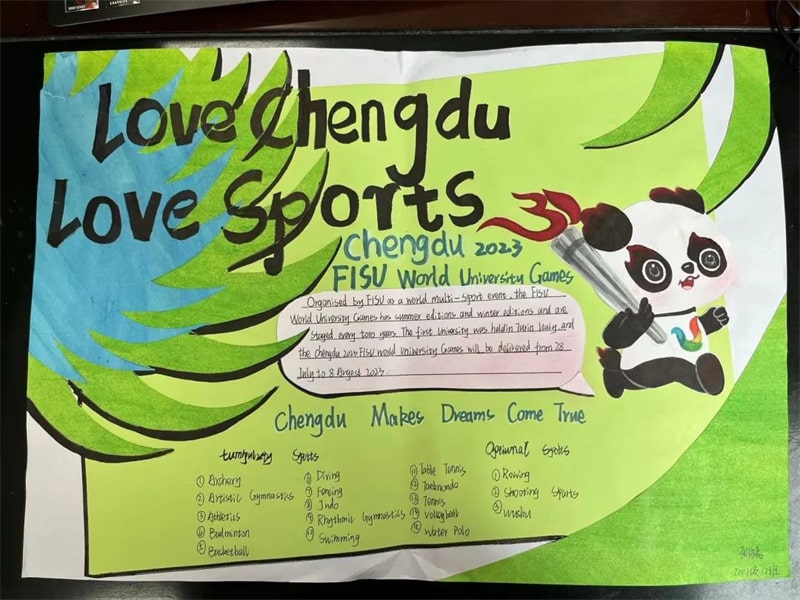 Love Chengdu
Love Sports
Chengdu 2023
FISU World University Games
Organised by FISU as a world multi-sport event. the FISU
World University Games has summer editions and winter editions and are
staged every two years. The first University was held in Turin Italy and
the chengdu 2023 FISU world University Games will be delivered from 28
July to 8 Argest 2023
Chengdu Makes Dreams Come True
Sports
① Archery
② Artistic Gymnastics
③ Athletics
Badminton
Basketball
Diving
Fencing
Judo
Rhythmic Gymnastics
Swimming
Table Tennis
Taekwondo
Tennis
Volleyball
Water Polo
Optional Sports
① Rowing
② Shooting Sports
③ Wushu